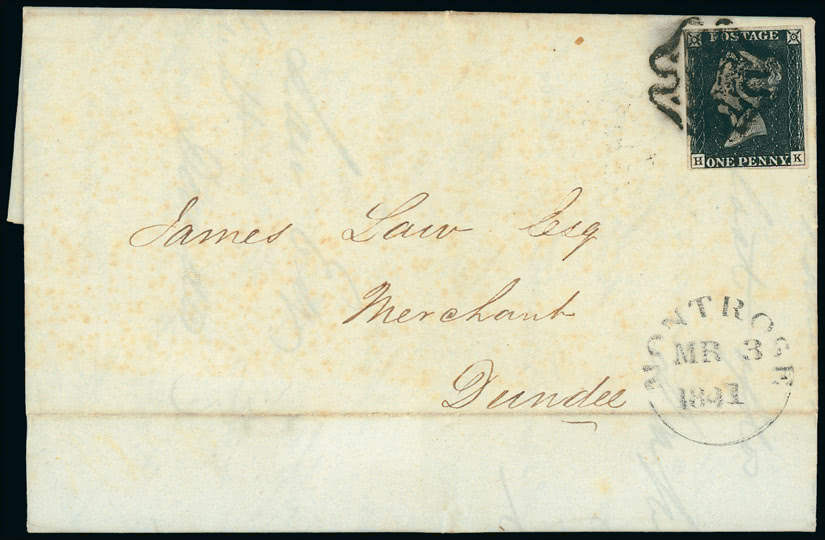 POSTAGE
H ONE PENNY K
James Law Esq
Merchant
Dundee
MONTROSE
MR 3
1841